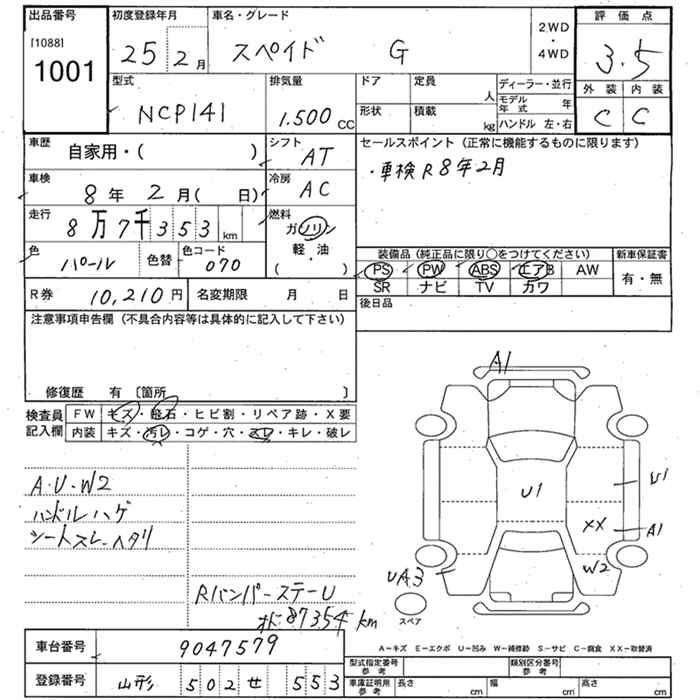 出品番号 初度登録年月 車名・グレード 2WD・4WD 評価点
[1088]
1001 25 2月 スペイド G 3.5
型式 排気量 ドア 定員 人 ディーラー・並行 外装 内装
NCP141 1.500cc 形状 積載 kg モデル年式 年 C C
ハンドル 左・右
車歴 自家用・( ) シフト AT セールスポイント(正常に機能するものに限ります)
車検 8年 2月( 日) 冷房 AC ・車検R8年2月
走行 8万7千353km 燃料 ガソリン・軽・油( )
色 パール 色替 色コード 070
装備品(純正品に限り〇をつけてください) 新車保証書
PS PW ABS エアB AW 有・無
SR ナビ TV カワ
R券 10,210円 名変期限 月 日 後日品
注意事項申告欄(不具合内容等は具体的に記入して下さい)
修復歴 有〔箇所 〕
検査員記入欄 FW キズ・飛石・ヒビ割・リペア跡・X要
内装 キズ・汚レ・コゲ・穴・スレ・キレ・破レ
A1
A・U・W2
ハンドルハゲ
シートスレ・ヘタリ
U1
U1
XX
A1
W2
UA3
スペア
RバンパーステーU
ｵﾄﾞ87354km
車台番号 9047579
A－キズ E－エクボ U－凹み W－補修跡 S－サビ C－腐食 XX－取替済
登録番号 山形 502 せ 553
型式指定番号 参考 類別区分番号 参考
車庫証明用 参考 長さ cm 幅 cm 高さ cm